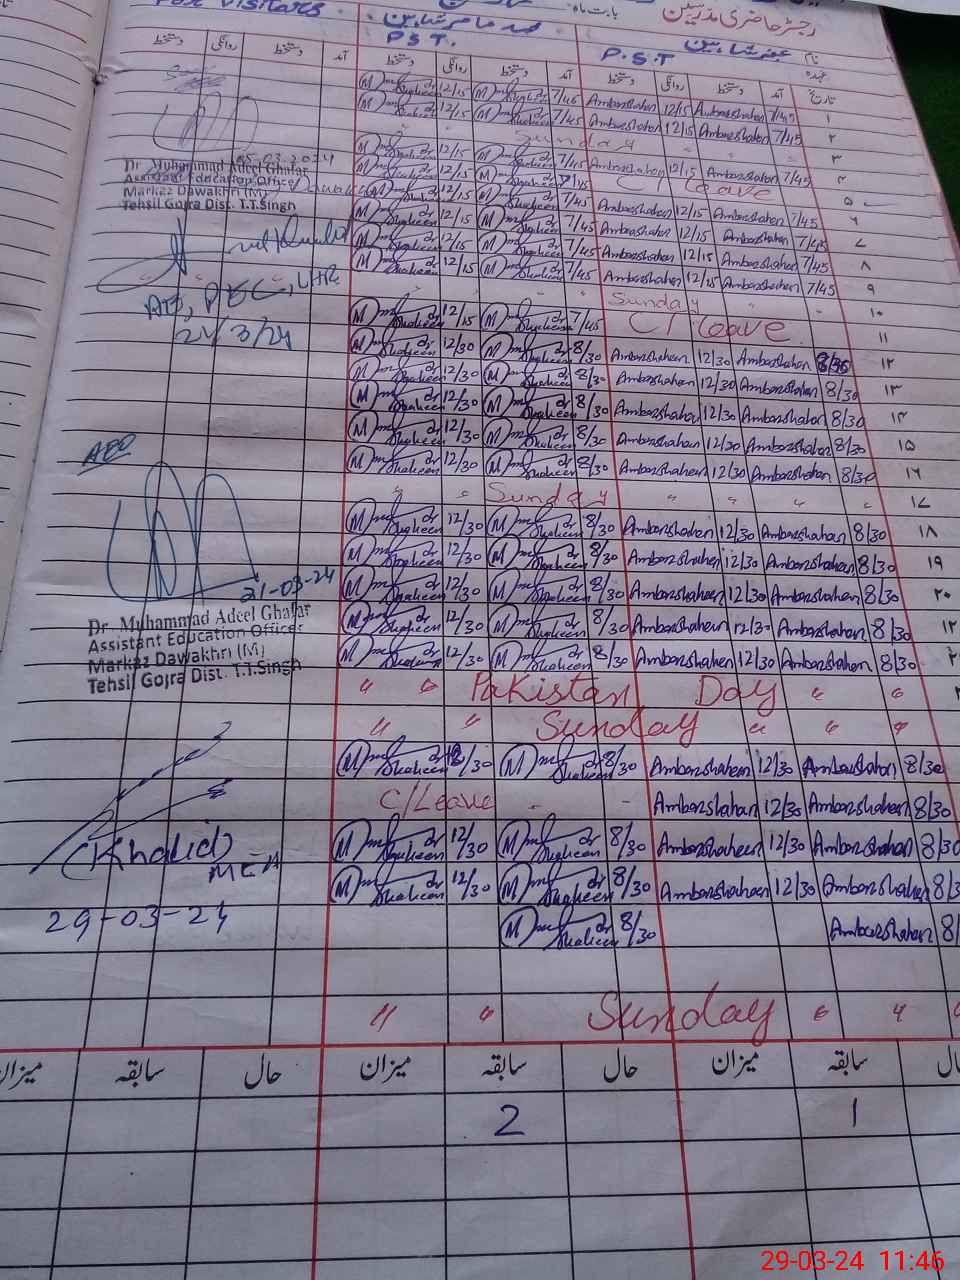 رجسٹر حاضری مدرسین
بابت ماہ
For Visitors
محمد عامر شاہین
P.S.T.
عنبر شاہین
P.S.T
نام
عہدہ
دستخط روانگی دستخط آمد دستخط روانگی دستخط آمد دستخط روانگی دستخط آمد تاریخ
Shaheen 12/15 Shaheen 7/45 Ambarshahen 12/15 Ambarshahen 7/45 ۱
Shaheen 12/15 Shaheen 7/45 Ambarshahen 12/15 Ambarshahen 7/45 ۲
Sunday ۳
Shaheen 12/15 Shaheen 7/45 Ambarshahen 12/15 Ambarshahen 7/45 ۴
Shaheen 12/15 Shaheen 7/45 C/leave ۵
Shaheen 12/15 Shaheen 7/45 Ambarshahen 12/15 Ambarshahen 7/45 ۶
Shaheen 12/15 Shaheen 7/45 Ambarshahen 12/15 Ambarshahen 7/45 ۷
Shaheen 12/15 Shaheen 7/45 Ambarshahen 12/15 Ambarshahen 7/45 ۸
Shaheen 12/15 Shaheen 7/45 Ambarshahen 12/15 Ambarshahen 7/45 ۹
Sunday ۱۰
Shaheen 12/15 Shaheen 7/45 C/leave ۱۱
Shaheen 12/30 Shaheen 8/30 Ambarshahen 12/30 Ambarshahen 8/30 ۱۲
Shaheen 12/30 Shaheen 8/30 Ambarshahen 12/30 Ambarshahen 8/30 ۱۳
Shaheen 12/30 Shaheen 8/30 Ambarshahen 12/30 Ambarshahen 8/30 ۱۴
Shaheen 12/30 Shaheen 8/30 Ambarshahen 12/30 Ambarshahen 8/30 ۱۵
Shaheen 12/30 Shaheen 8/30 Ambarshahen 12/30 Ambarshahen 8/30 ۱۶
" " Sunday " " " " ۱۷
Shaheen 12/30 Shaheen 8/30 Ambarshahen 12/30 Ambarshahen 8/30 ۱۸
Shaheen 12/30 Shaheen 8/30 Ambarshahen 12/30 Ambarshahen 8/30 ۱۹
Shaheen 12/30 Shaheen 8/30 Ambarshaheen 12/30 Ambarshahen 8/30 ۲۰
Shaheen 12/30 Shaheen 8/30 Ambarshahen 12/30 Ambarshahen 8/30
Shaheen 12/30 Shaheen 8/30 Ambarshaheen 12/30 Ambarshahen 8/30
" " Pakistan Day " "
" " Sunday " " "
Shaheen 12/30 Shaheen 8/30 Ambarshahen 12/30 Ambarshahen 8/30
C/Leave - - Ambarshahan 12/30 Ambarshahen 8/30
Shaheen 12/30 Shaheen 8/30 Ambarshaheen 12/30 Ambarshahan 8/30
Shaheen 12/30 Shaheen 8/30 Ambarshahaen 12/30 Ambarshahen 8/3
Shaheen 8/30 Ambarshahen 8/
" " Sunday " " "
05-03-2024
Dr Muhammad Adeel Ghafar
Assistant Education Officer
Markaz Dawakhri (M)
Tehsil Gojra Dist. T.T.Singh
AEO, PEC, LHR
21/3/24
AEO
21-03-24
Dr. Muhammad Adeel Ghafar
Assistant Education Officer
Markaz Dawakhri (M)
Tehsil Gojra Dist. T.T.Singh
(Khalid)
MEA
29-03-24
میزان سابقہ حال میزان سابقہ حال میزان سابقہ حال
2 1
29-03-24 11:46